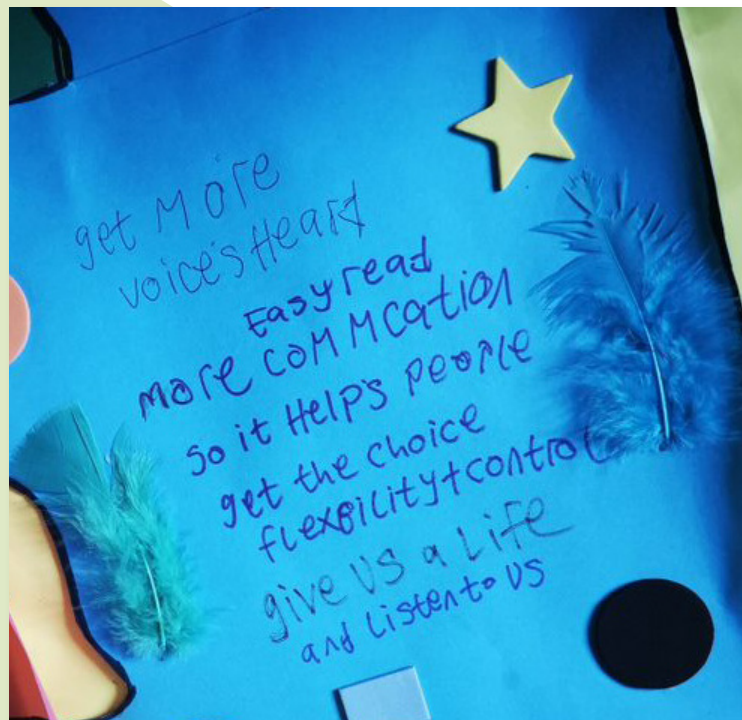 get More
voice's Heard
Easy read
more comMcation
so it Help's people
get the choice
flexbility + control
give us a Life
and Listen to us